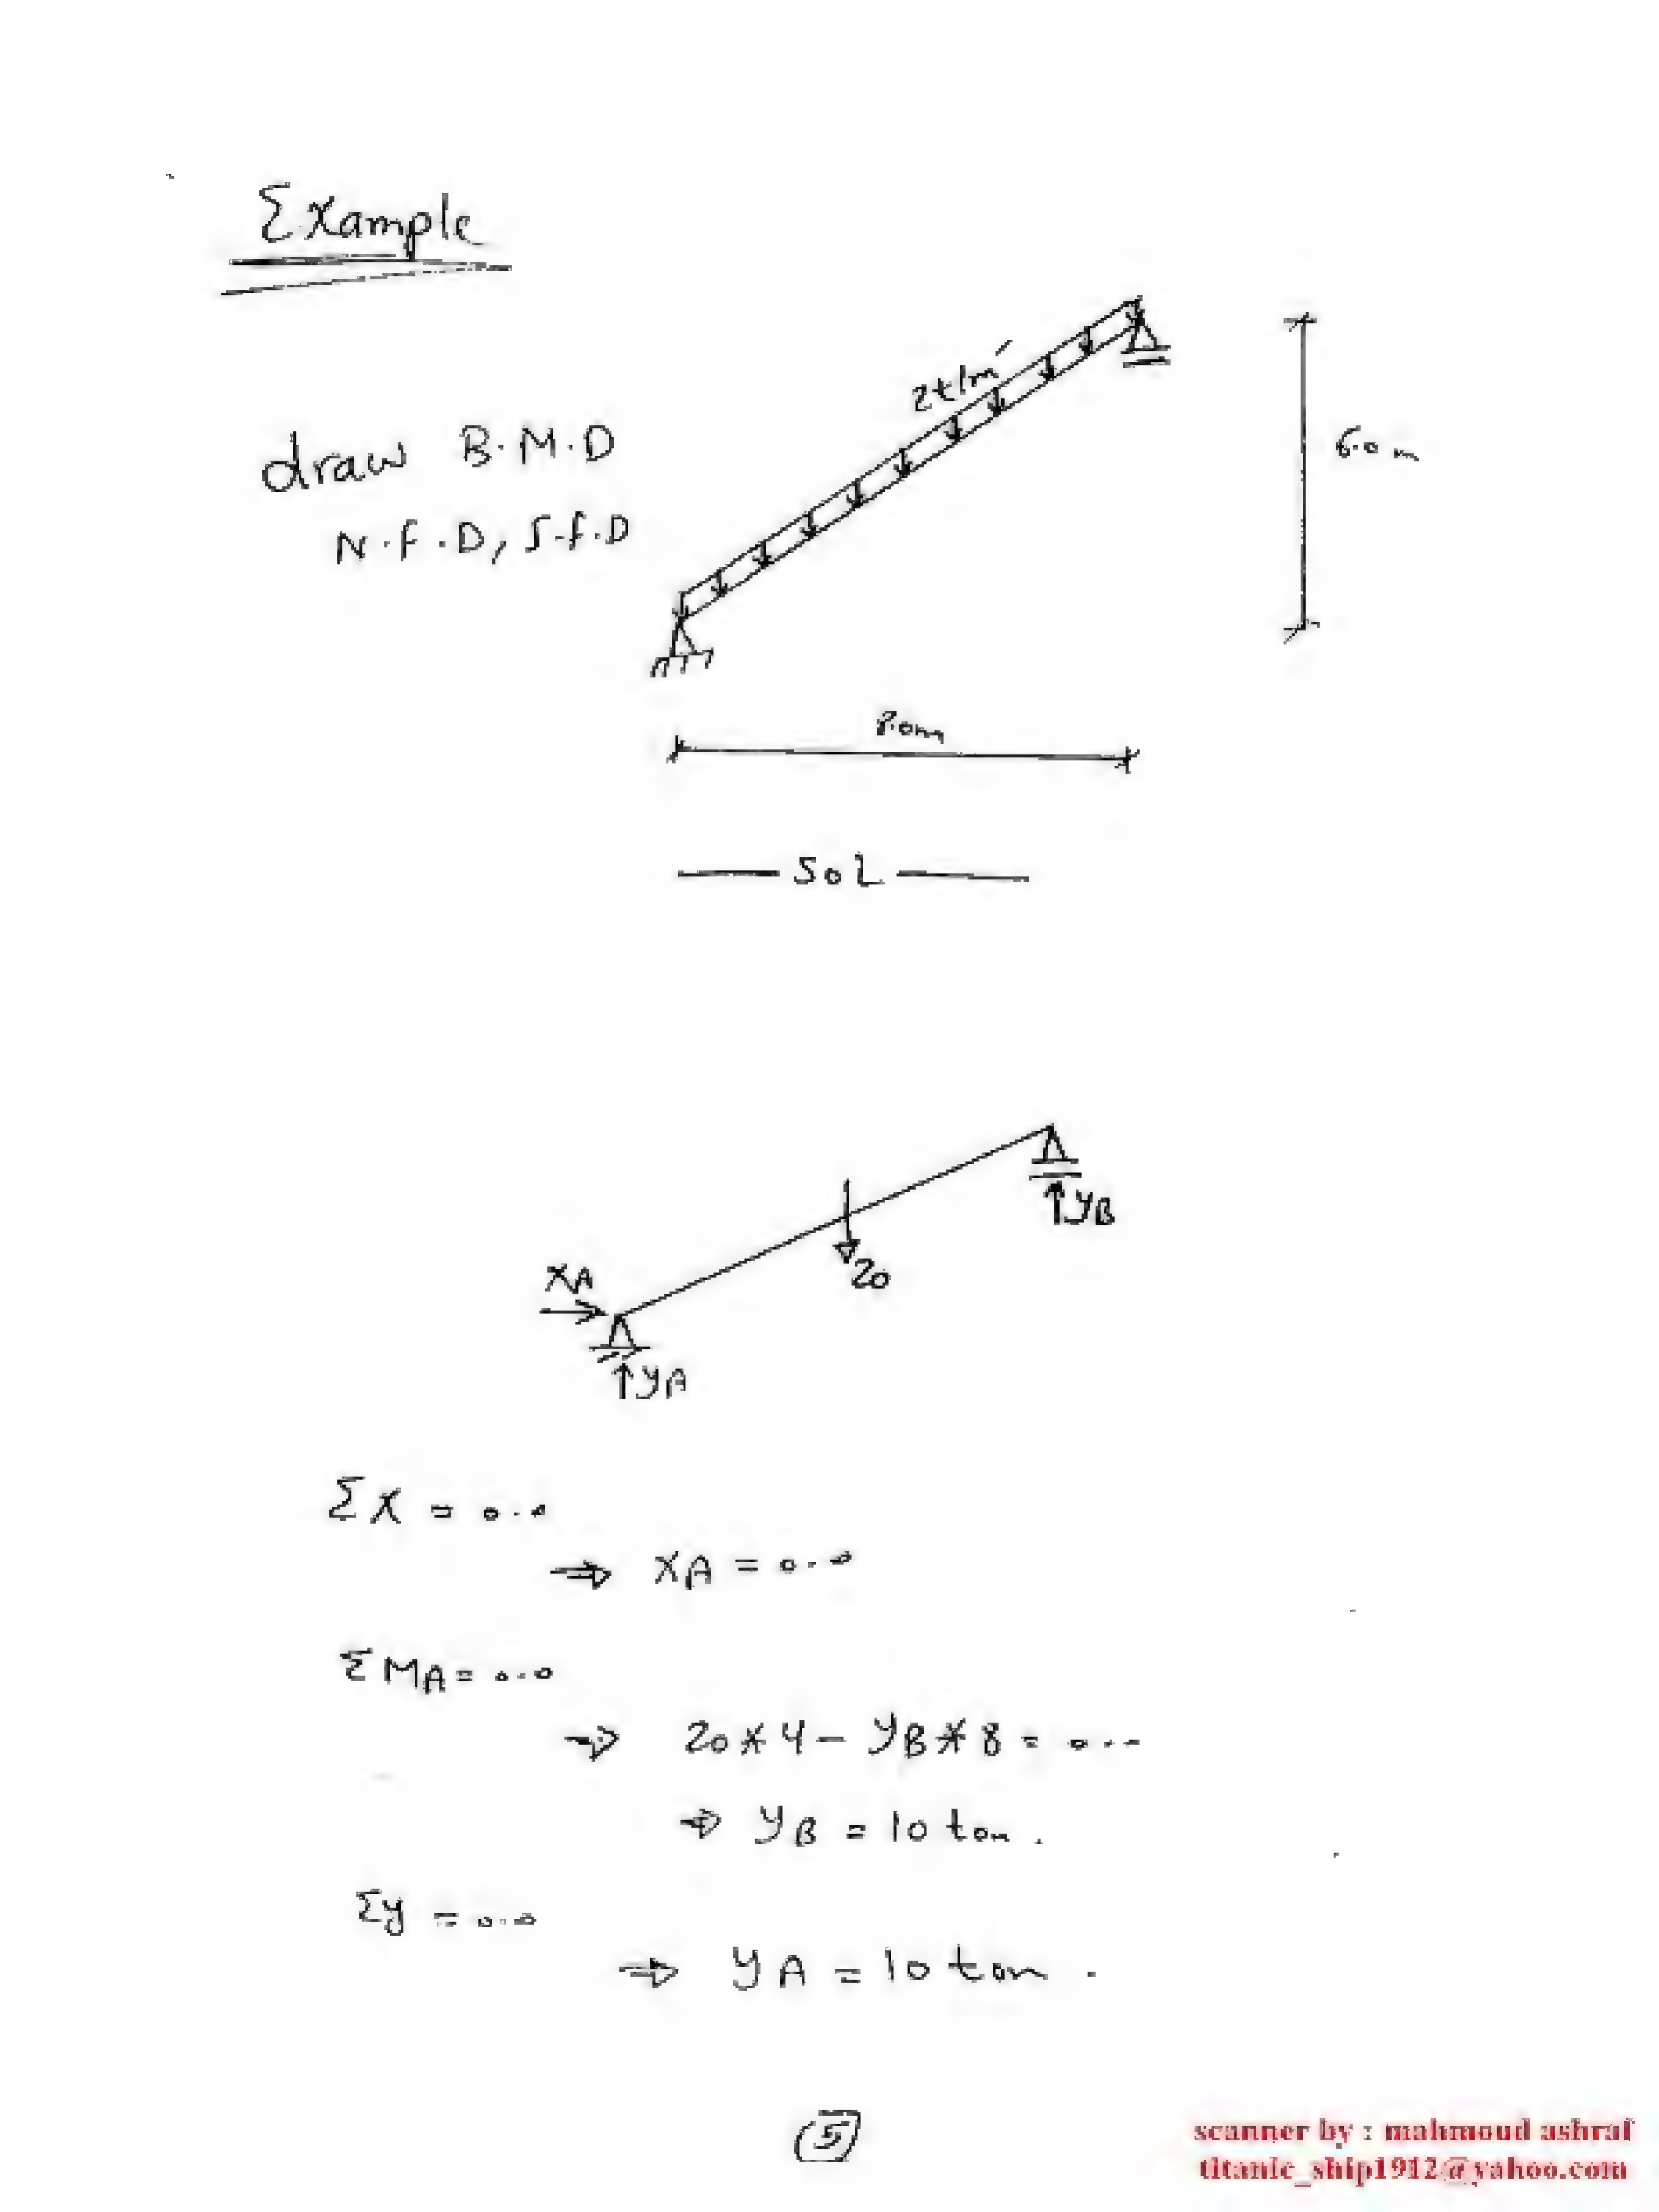 Example
2t/m'
6.0 m
draw B.M.D
N.F.D, S.F.D
8.0m
SOL
XA
YA
20
YB
ΣX = 0.0
⇒ XA = 0.0
ΣMA = 0.0
⇒ 20*4 - YB*8 = 0.0
⇒ YB = 10 ton.
Σy = 0.0
⇒ YA = 10 ton.
5
scanner by : mahmoud ashraf
titanic_ship1912@yahoo.com